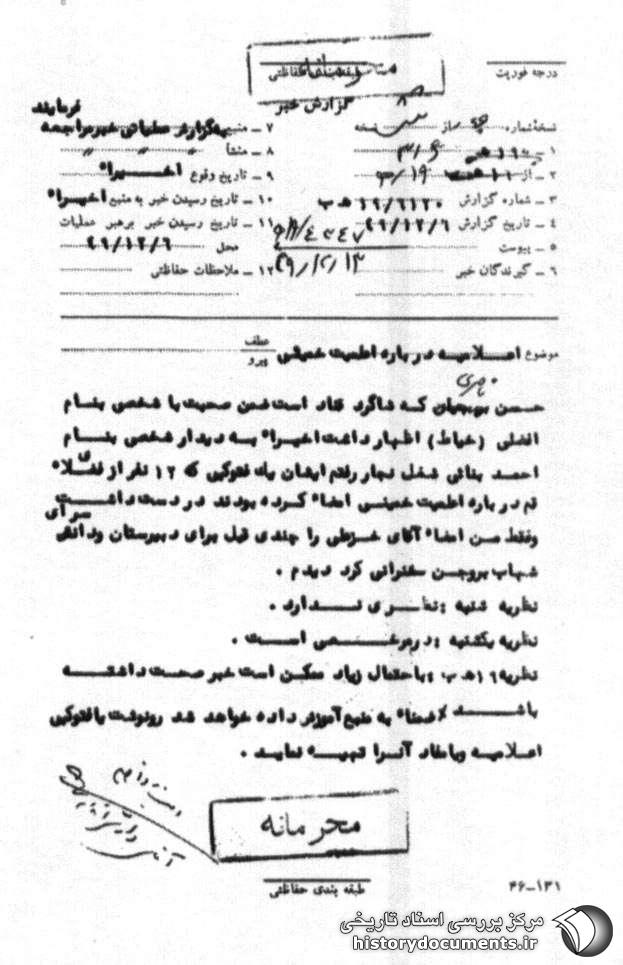 درجه فوریت
طبقه‌بندی حفاظتی
گزارش خبر
نسخه شماره از نسخه
۱ ـ
۲ ـ از
۳ ـ شماره گزارش ۱۶/۶۱۲۰ ه‍ ب
۴ ـ تاریخ گزارش ۴۹/۱۲/۶
۵ ـ پیوست
۶ ـ گیرندگان خبر
۷ ـ منبع بگزارش عملیاتی خبر مراجعه فرمایند
۸ ـ منشا " " "
۹ ـ تاریخ وقوع اخیراً
۱۰ ـ تاریخ رسیدن خبر به منبع اخیراً
۱۱ ـ تاریخ رسیدن خبر برهبر عملیات
محل ۴۹/۱۲/۶
۱۲ ـ ملاحظات حفاظتی
۴۹/۱۲/۱۳
موضوع اعلامیه درباره اعلمیت خمینی عطف پیرو
حسن بهجتیان که شاگرد قناد است ضمن صحبت با شخصی بنام
افضلی (خیاط) اظهار داشت اخیراً به دیدار شخصی بنام
احمد بنائی شغل نجار رفتم ایشان یک فتوکپی که ۱۲ نفر از فضلاء
قم درباره اعلمیت خمینی امضاء کرده بودند در دست داشت
وفقط من امضاء آقای خزعلی را چندی قبل برای دبیرستان ودانش سرای
شهاب بروجن سخنرانی کرد دیدم .
نظریه شنبه : نظری ندارد .
نظریه یکشنبه : درعرضی است .
نظریه ۱۶ ه‍ ب : باحتمال زیاد ممکن است خبر صحت داشته
باشد ضمناً به منبع آموزش داده خواهد شد رونوشت یا فتوکپی
اعلامیه ویا مفاد آنرا تهیه نماید .
محرمانه
طبقه بندی حفاظتی
۴۶-۱۳۱
مرکز بررسی اسناد تاریخی
historydocuments.ir